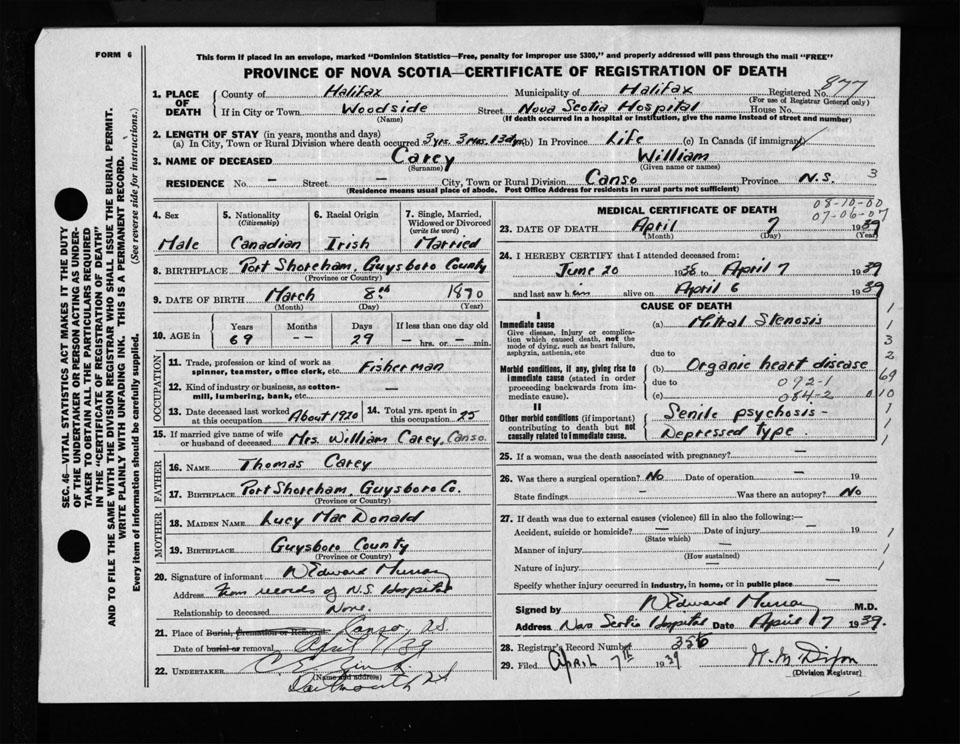 FORM 6
This form if placed in an envelope, marked "Dominion Statistics—Free, penalty for improper use $300," and properly addressed will pass through the mail "FREE"
PROVINCE OF NOVA SCOTIA—CERTIFICATE OF REGISTRATION OF DEATH
SEC. 46—VITAL STATISTICS ACT MAKES IT THE DUTY
OF THE UNDERTAKER OR PERSON ACTING AS UNDER-
TAKER TO OBTAIN ALL THE PARTICULARS REQUIRED
IN THE "CERTIFICATE OF REGISTRATION OF DEATH"
AND TO FILE THE SAME WITH THE DIVISION REGISTRAR WHO SHALL ISSUE THE BURIAL PERMIT.
WRITE PLAINLY WITH UNFADING INK. THIS IS A PERMANENT RECORD.
Every item of information should be carefully supplied. (See reverse side for instructions.)
1. PLACE OF DEATH County of Halifax Municipality of Halifax Registered No. 877
(For use of Registrar General only)
If in City or Town Woodside Street Nova Scotia Hospital House No.
(Name) (If death occurred in a hospital or institution, give the name instead of street and number)
2. LENGTH OF STAY (in years, months and days)
(a) In City, Town or Rural Division where death occurred 3 yrs. 3 mos. 13 dys (b) In Province Life (c) In Canada (if immigrant)
3. NAME OF DECEASED Carey William
(Surname) (Given name or names)
RESIDENCE No. – Street – City, Town or Rural Division Canso Province N.S. 3
(Residence means usual place of abode. Post Office Address for residents in rural parts not sufficient)
4. Sex Male
5. Nationality (Citizenship) Canadian
6. Racial Origin Irish
7. Single, Married, Widowed or Divorced (write the word) Married
8. BIRTHPLACE Port Shoreham, Guysboro County
(Province or Country)
9. DATE OF BIRTH March 8th 1870
(Month) (Day) (Year)
10. AGE in Years 69 Months -- Days 29 If less than one day old – hrs. or – min.
OCCUPATION
11. Trade, profession or kind of work as spinner, teamster, office clerk, etc. Fisherman
12. Kind of industry or business, as cotton-mill, lumbering, bank, etc. –
13. Date deceased last worked at this occupation About 1920
14. Total yrs. spent in this occupation 25
15. If married give name of wife or husband of deceased Mrs. William Carey, Canso.
FATHER
16. NAME Thomas Carey
17. BIRTHPLACE Port Shoreham, Guysboro Co.
(Province or Country)
MOTHER
18. MAIDEN NAME Lucy MacDonald
19. BIRTHPLACE Guysboro County
(Province or Country)
20. Signature of informant N Edward Murray
Address From records of N.S. Hospital
Relationship to deceased None.
21. Place of Burial, Cremation or Removal Canso, N.S.
Date of burial or removal April 7/39
22. UNDERTAKER
(Name and address)
Dartmouth N.S.
MEDICAL CERTIFICATE OF DEATH
08-10-00
07-06-07
23. DATE OF DEATH April 7 1939
(Month) (Day) (Year)
24. I HEREBY CERTIFY that I attended deceased from:
June 20 1938 to April 7 1939
and last saw him alive on April 6 1939
CAUSE OF DEATH
I
Immediate cause
Give disease, injury or complication which caused death, not the mode of dying, such as heart failure, asphyxia, asthenia, etc
(a) Mitral Stenosis
due to
Morbid conditions, if any, giving rise to immediate cause (stated in order proceeding backwards from immediate cause).
(b) Organic heart disease
due to 092-1
(c) 084-2
II
Other morbid conditions (if important) contributing to death but not causally related to immediate cause.
Senile psychosis-
Depressed type.
1
1
3
2
69
010
1
1
1
25. If a woman, was the death associated with pregnancy? –
26. Was there a surgical operation? No Date of operation – 19
State findings – Was there an autopsy? No
27. If death was due to external causes (violence) fill in also the following:—
Accident, suicide or homicide? – Date of injury – 19
(State which)
Manner of injury –
(How sustained)
Nature of injury –
Specify whether injury occurred in industry, in home, or in public place –
Signed by N Edward Murray M.D.
Address Nova Scotia Hospital Date April 7 1939.
28. Registrar's Record Number 356
29. Filed April 7th 1939
(Division Registrar)